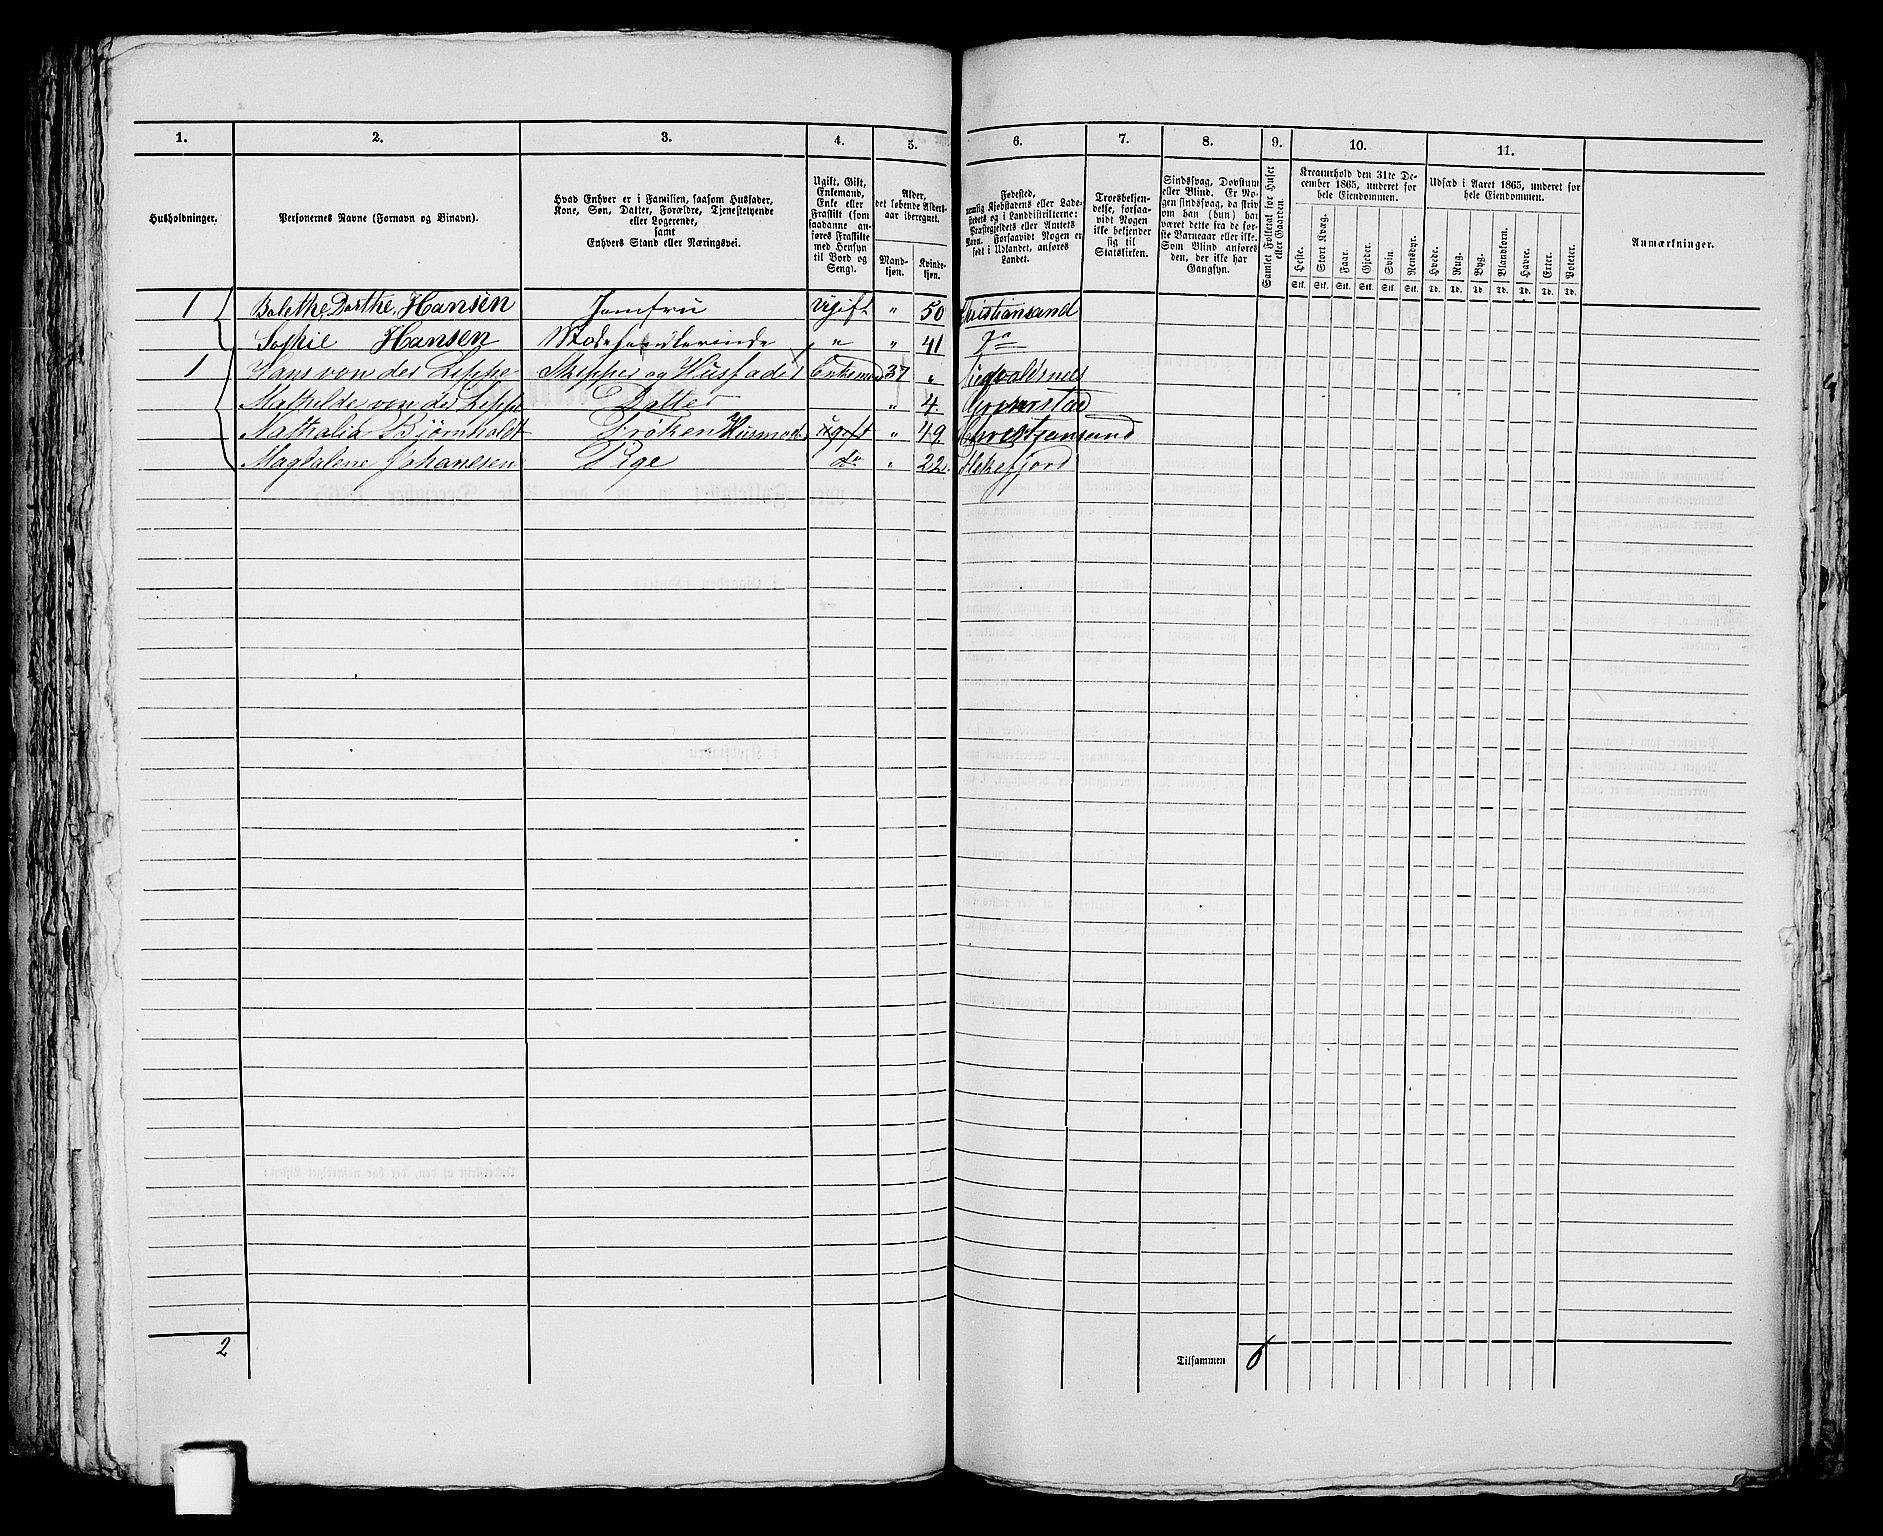 1. 2. 3. 4. 5. 6. 7. 8. 9. 10. 11.
Husholdninger.
Personernes Navne (Fornavn og Binavn).
Hvad Enhver er i Familien, saasom Husfader,
Kone, Søn, Datter, Forældre, Tjenestetyende
eller Logerende,
samt
Enhvers Stand eller Næringsvei.
Ugift, Gift,
Enkemand,
Enke eller
Fraskilt (som
saadanne an-
føres Fraskilte
med Hensyn
til Bord og
Seng).
Alder,
det løbende Alders-
aar iberegnet.
Mand-
kjøn.
Kvinde-
kjøn.
Fødested,
nemlig Kjøbstadens eller Lade-
stedets og i Landdistrikterne:
Præstegjeldets eller Amtets
Navn. Forsaavidt Nogen er
født i Udlandet, anføres
Landet.
Troesbekjen-
delse, forsaa-
vidt Nogen
ikke bekjender
sig til
Statskirken.
Sindssvag, Døvstum
eller Blind. Er No-
gen sindssvag, da skriv
om han (hun) har
været dette fra de før-
ste Barneaar eller ikke.
Som Blind anføres
den, der ikke har
Gangsyn.
Samlet Folketal for Huset
eller Gaarden.
Kreaturhold den 31te De-
cember 1865, underet for
hele Eiendommen.
Heste. Stort Kvæg. Faar. Gjeder. Svin Rensdyr.
Stk. Stk. Stk. Stk. Stk. Stk.
Udsæd i Aaret 1865, underet for
hele Eiendommen.
Hvede. Rug. Byg. Blandkorn. Havre. Erter. Poteter.
Td. Td. Td. Td. Td. Td. Td.
Anmærkninger.
1 Bolethe Dorthe Hansen Jomfru ugift " 50 Christiansand
Sophie Hansen Modehandlerinde " " 41 Do
1 Hans von der Lippe Skipper og Husfader Enkemand 37 "
Mathilde von der Lippe Datter " 4
Nathalia Bjørnholdt Frøken Husmod. ugift " 49 Christiansand
Magdalene Johanesen Pige do " 22 Flekkefjord
2
Tilsammen 6